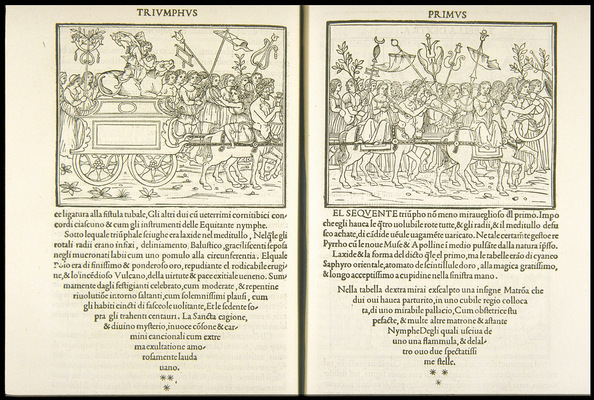 TRIVMPHVS
ce ligatura alla fistula tubale, Gli altri dui cũ ueterrimi cornitibici con-
cordi ciascuno & cum gli instrumenti delle Equitante nymphe.
Sotto lequale triũphale seiughe era laxide nel meditullo, Nelqle gli
rotali radii erano infixi, deliniamento Balustico, graciliscenti seposa
negli mucronati labii cum uno pomulo alla circunferentia. Elquale
Polo era di finissimo & ponderoso oro, repudiante el rodicabile erugi-
ne, & lo'incēdioso Vulcano, della uirtute & pace exitiale ueneno. Sum-
mamente dagli festigianti celebrato, cum moderate, & repentine
riuolutiõe intorno saltanti, cum solemnissimi plausi, cum
gli habiti cincti di fasceole uolitante, Et le sedente so-
pra gli trahenti centauri. La Sancta cagione,
& diuino mysterio, inuoce cõsone & car-
mini cancionali cum extre
ma exultatione amo-
rosamente lauda
uano.
**
*
PRIMVS
EL SEQVENTE triũpho nõ meno mirauegliofo dl primo. Impo
che egli hauea le q̃tro uolubile rote tutte, & gli radii, & il meditullo defu
sco achate, di cãdide uẽule uagamẽte uaricato. Ne tale certamẽte gestoe re
Pyrrho cũ le noue Muse & Apolline i medio pulsãte dalla natura ĩpsso.
Laxide & la forma del dicto q̃le el primo, ma le tabelle erão di cyaneo
Saphyro orientale, atomato de scintillule doro, alla magica gratissimo,
& longo acceptissimo a cupidine nella sinistra mano.
Nella tabella dextra mirai exscalpto una insigne Matrõa che
dui oui hauea parturito, in uno cubile regio colloca
ta, di uno mirabile pallacio, Cum obstetrice stu
pefacte, & multe altre matrone & astante
Nymphe Degli quali usciua de
uno una flammula, & delal-
tro ouo due spectatissi
me stelle.
**
*